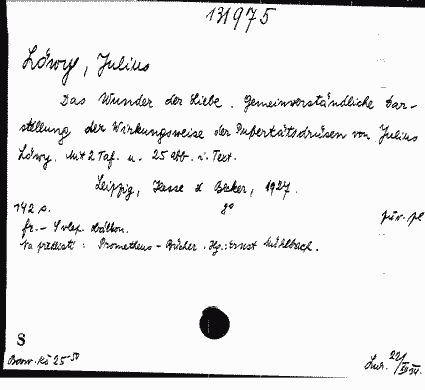 131975
Löwy, Julius
Das Wunder der Liebe. Gemeinverständliche Dar-
stellung der Wirkungsweise der Pubertätsdrüsen von Julius
Löwy. Mit 2 Taf. u. 25 Abb. i. Text.
Leipzig, Hesse & Becker, 1927.
142 s. 8°
fr.- Svlap.
Na předlist: Prometheus-Bücher. Hg.: Ernst Mühlbach.
S
Kč 25-50